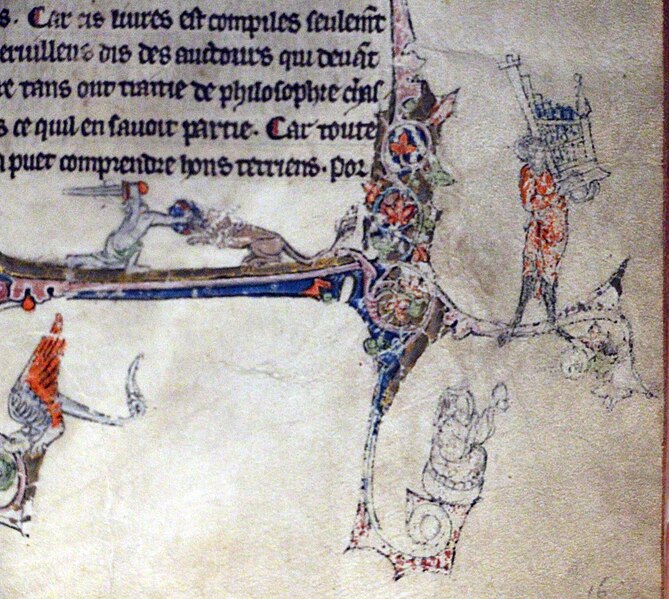 s. Car cis liures est compiles seulemt
eruilleus dis des auctours qui deuāt
re tans ont traitie de philosophie chas
s ce quil en sauoir partie. Car toute
puet comprendre hons terriens. Por